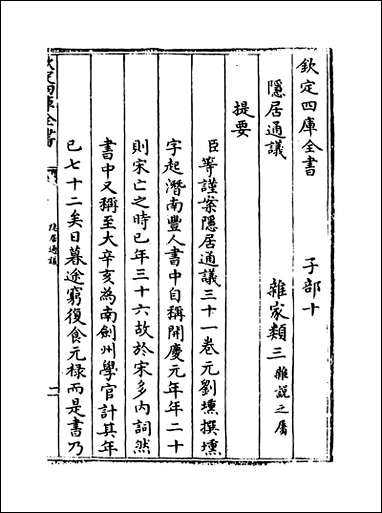 欽定四庫全書　子部十
隱居通議　雜家類三雜說之屬
提要
臣等謹案隱居通議三十一卷元劉壎撰壎
字起潛南豐人書中自稱開慶元年年二十
則宋亡之時已年三十六故於宋多內詞然
書中又稱至大辛亥為南劍州學官計其年
已七十二矣日暮途窮復食元祿而是書乃
欽定四庫全書
隱居通議